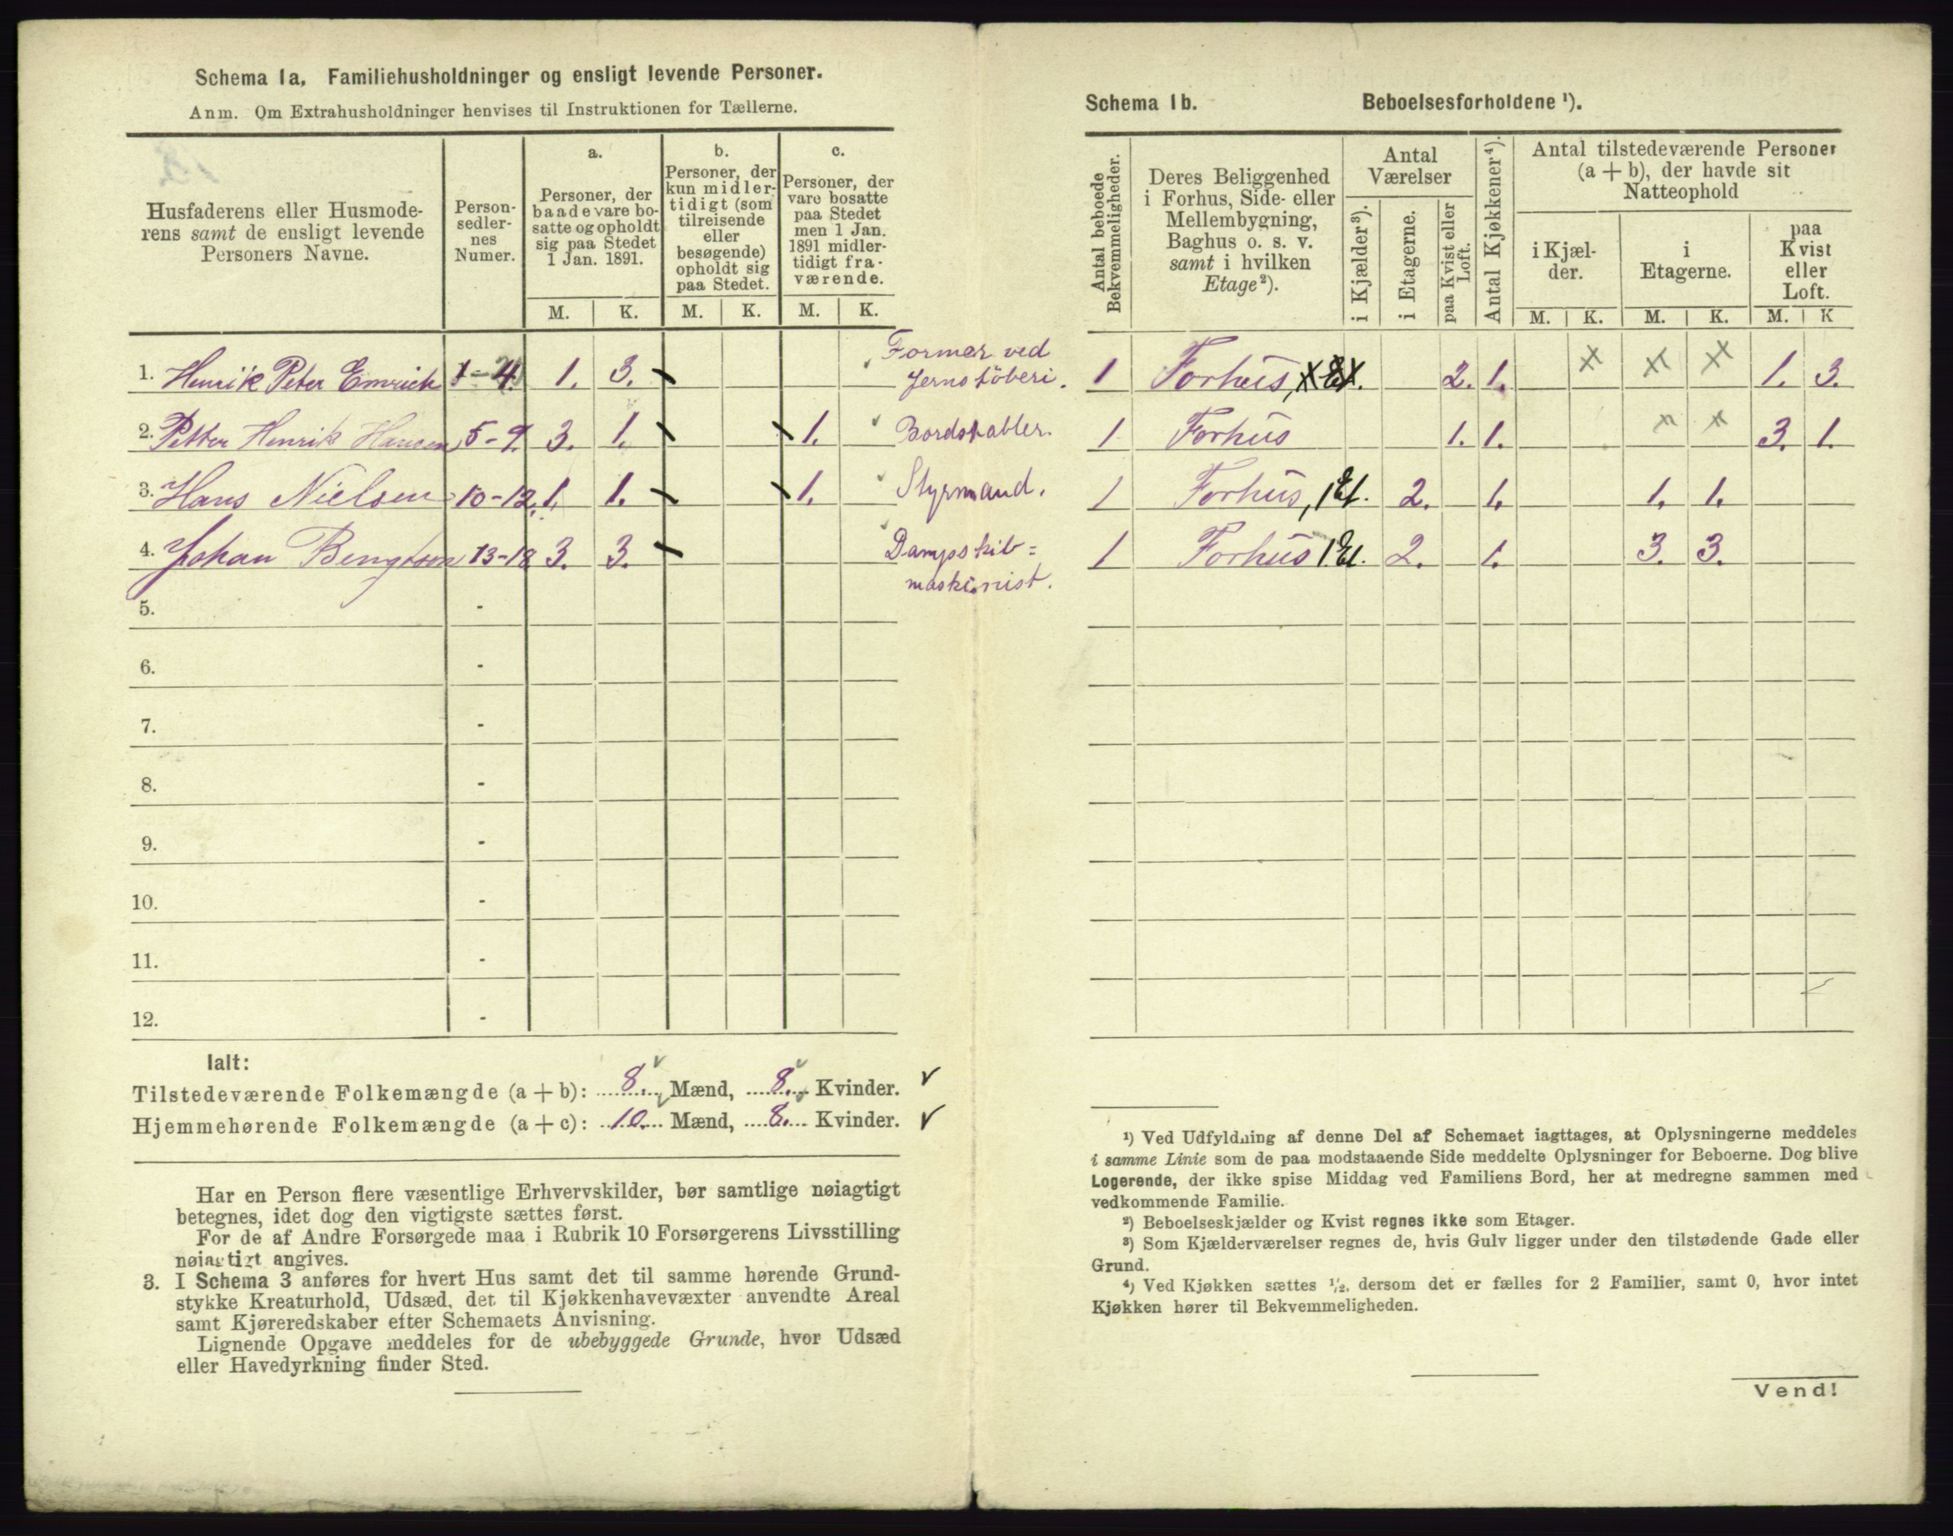 Schema 1a. Familiehusholdninger og ensligt levende Personer.
Anm. Om Extrahusholdninger henvises til Instruktionen for Tællerne.
Husfaderens eller Husmode-
rens samt de ensligt levende
Personers Navne.
Person-
sedler-
nes
Numer.
a.
Personer, der
baade vare bo-
satte og opholdt
sig paa Stedet
1 Jan. 1891.
b.
Personer, der
kun midler-
tidigt (som
tilreisende
eller
besøgende)
opholdt sig
paa Stedet.
c.
Personer, der
vare bosatte
paa Stedet
men 1 Jan.
1891 midler-
tidigt fra-
værende.
M. K. M. K. M. K.
1. Henrik Peter Emrich 1-4. 1. 3. Former ved
Jernstöberi.
2. Petter Henrik Hansen 5-9. 3. 1. 1. Bordstabler.
3. Hans Nielsen 10-12. 1. 1. 1. Styrmand.
4. Johan Bengtson 13-18 3. 3. Dampskib=
maskinist.
5. -
6. -
7. -
8. -
9. -
10. -
11. -
12. -
Ialt:
Tilstedeværende Folkemængde (a + b): 8. Mænd, 8. Kvinder.
Hjemmehørende Folkemængde (a + c): 10. Mænd, 8. Kvinder.
Har en Person flere væsentlige Erhvervskilder, bør samtlige nøiagtigt
betegnes, idet dog den vigtigste sættes først.
For de af Andre Forsørgede maa i Rubrik 10 Forsørgerens Livsstilling
nøiagtigt angives.
3. I Schema 3 anføres for hvert Hus samt det til samme hørende Grund-
stykke Kreaturhold, Udsæd, det til Kjøkkenhavevæxter anvendte Areal
samt Kjøreredskaber efter Schemaets Anvisning.
Lignende Opgave meddeles for de ubebyggede Grunde, hvor Udsæd
eller Havedyrkning finder Sted.
Schema 1b. Beboelsesforholdene ¹).
Antal beboede
Bekvemmeligheder.
Deres Beliggenhed
i Forhus, Side- eller
Mellembygning,
Baghus o. s. v.
samt i hvilken
Etage²).
Antal
Værelser
i Kjælder³).
i Etagerne.
paa Kvist eller
Loft.
Antal Kjøkkener⁴).
Antal tilstedeværende Personer
(a + b), der havde sit
Natteophold
i Kjæl-
der.
i
Etagerne.
paa
Kvist
eller
Loft.
M. K. M. K. M. K
1 Forhus, 2. 1. 1. 3.
1 Forhus 1. 1. 3. 1.
1 Forhus, 1 Et. 2. 1. 1. 1.
1 Forhus 1 Et. 2. 1. 3. 3.
¹) Ved Udfyldning af denne Del af Schemaet iagttages, at Oplysningerne meddeles
i samme Linie som de paa modstaaende Side meddelte Oplysninger for Beboerne. Dog blive
Logerende, der ikke spise Middag ved Familiens Bord, her at medregne sammen med
vedkommende Familie.
²) Beboelseskjælder og Kvist regnes ikke som Etager.
³) Som Kjælderværelser regnes de, hvis Gulv ligger under den tilstødende Gade eller
Grund.
⁴) Ved Kjøkken sættes ¹/₂, dersom det er fælles for 2 Familier, samt 0, hvor intet
Kjøkken hører til Bekvemmeligheden.
Vend!